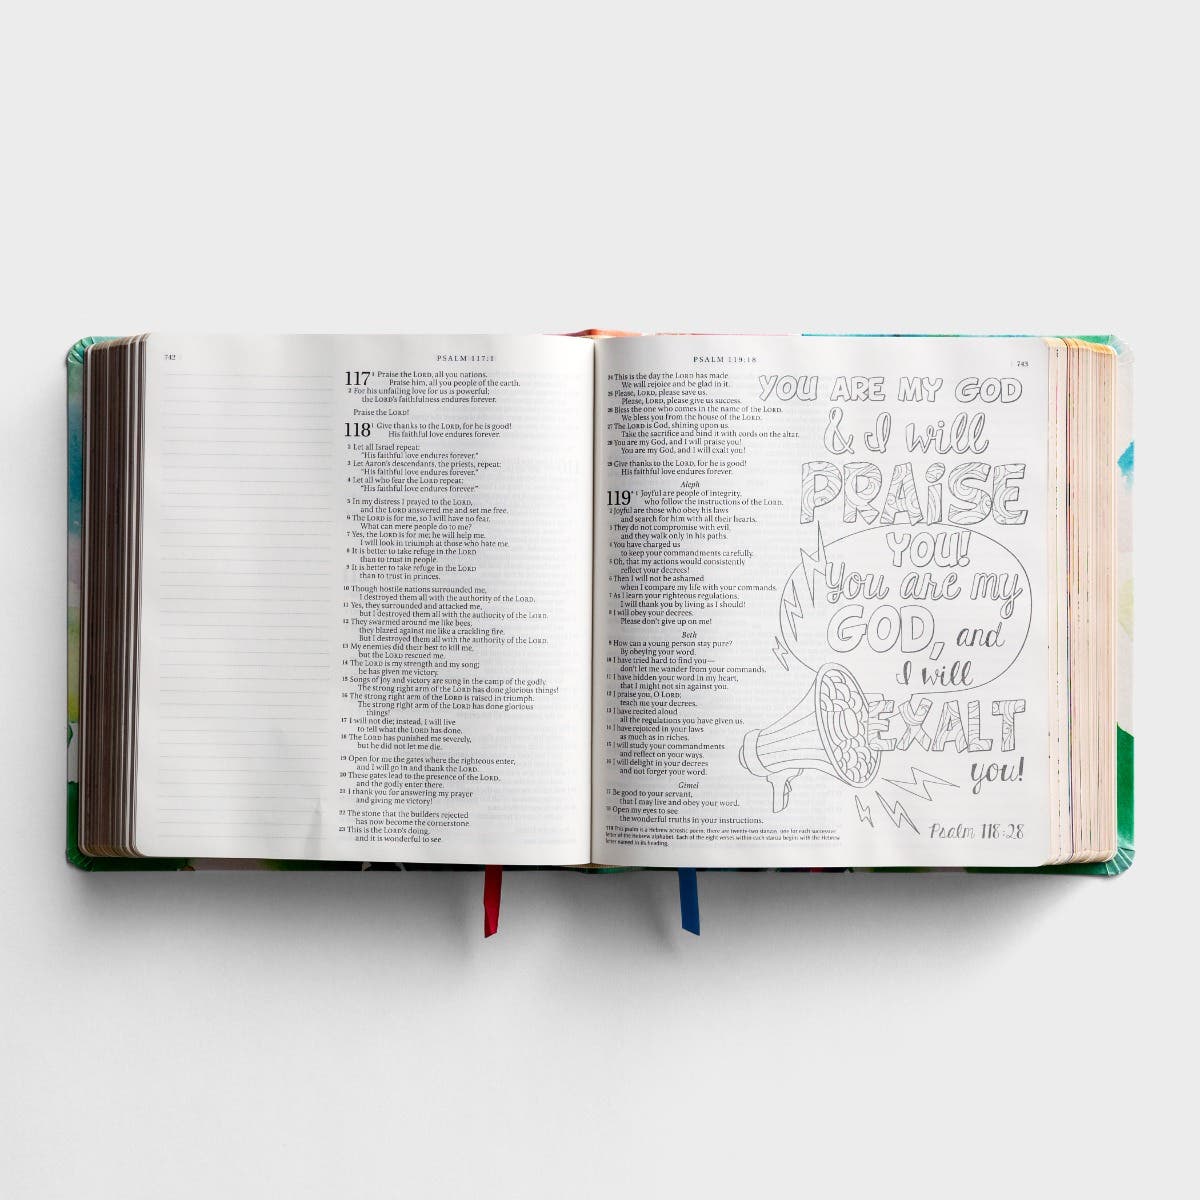 742
PSALM 117:1
117 1 Praise the LORD, all you nations.
Praise him, all you people of the earth.
2 For his unfailing love for us is powerful;
the LORD's faithfulness endures forever.
Praise the LORD!
118 1 Give thanks to the LORD, for he is good!
His faithful love endures forever.
2 Let all Israel repeat:
"His faithful love endures forever."
3 Let Aaron's descendants, the priests, repeat:
"His faithful love endures forever."
4 Let all who fear the LORD repeat:
"His faithful love endures forever."
5 In my distress I prayed to the LORD,
and the LORD answered me and set me free.
6 The LORD is for me, so I will have no fear.
What can mere people do to me?
7 Yes, the LORD is for me; he will help me.
I will look in triumph at those who hate me.
8 It is better to take refuge in the LORD
than to trust in people.
9 It is better to take refuge in the LORD
than to trust in princes.
10 Though hostile nations surrounded me,
I destroyed them all with the authority of the LORD.
11 Yes, they surrounded and attacked me,
but I destroyed them all with the authority of the LORD.
12 They swarmed around me like bees;
they blazed against me like a crackling fire.
But I destroyed them all with the authority of the LORD.
13 My enemies did their best to kill me,
but the LORD rescued me.
14 The LORD is my strength and my song;
he has given me victory.
15 Songs of joy and victory are sung in the camp of the godly.
The strong right arm of the LORD has done glorious things!
16 The strong right arm of the LORD is raised in triumph.
The strong right arm of the LORD has done glorious
things!
17 I will not die; instead, I will live
to tell what the LORD has done.
18 The LORD has punished me severely,
but he did not let me die.
19 Open for me the gates where the righteous enter,
and I will go in and thank the LORD.
20 These gates lead to the presence of the LORD,
and the godly enter there.
21 I thank you for answering my prayer
and giving me victory!
22 The stone that the builders rejected
has now become the cornerstone.
23 This is the LORD's doing,
and it is wonderful to see.
PSALM 119:18
743
24 This is the day the LORD has made.
We will rejoice and be glad in it.
25 Please, LORD, please save us.
Please, LORD, please give us success.
26 Bless the one who comes in the name of the LORD.
We bless you from the house of the LORD.
27 The LORD is God, shining upon us.
Take the sacrifice and bind it with cords on the altar.
28 You are my God, and I will praise you!
You are my God, and I will exalt you!
29 Give thanks to the LORD, for he is good!
His faithful love endures forever.
Aleph
119* 1 Joyful are people of integrity,
who follow the instructions of the LORD.
2 Joyful are those who obey his laws
and search for him with all their hearts.
3 They do not compromise with evil,
and they walk only in his paths.
4 You have charged us
to keep your commandments carefully.
5 Oh, that my actions would consistently
reflect your decrees!
6 Then I will not be ashamed
when I compare my life with your commands.
7 As I learn your righteous regulations,
I will thank you by living as I should!
8 I will obey your decrees.
Please don't give up on me!
Beth
9 How can a young person stay pure?
By obeying your word.
10 I have tried hard to find you—
don't let me wander from your commands.
11 I have hidden your word in my heart,
that I might not sin against you.
12 I praise you, O LORD;
teach me your decrees.
13 I have recited aloud
all the regulations you have given us.
14 I have rejoiced in your laws
as much as in riches.
15 I will study your commandments
and reflect on your ways.
16 I will delight in your decrees
and not forget your word.
Gimel
17 Be good to your servant,
that I may live and obey your word.
18 Open my eyes to see
the wonderful truths in your instructions.
119 This psalm is a Hebrew acrostic poem; there are twenty-two stanzas, one for each successive
letter of the Hebrew alphabet. Each of the eight verses within each stanza begins with the Hebrew
letter named in its heading.
YOU ARE MY GOD
& I will
PRAiSE
YOU!
You are my
GOD, and
I will
EXALT
you!
Psalm 118:28